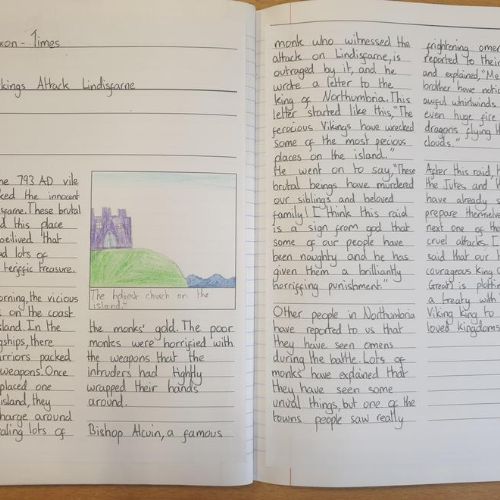 xon - Times
kings Attack Lindisfarne
he 793 AD vile
ked the innocent
sfarne. These brutal
d this place
oeilived that
ad lots of
terffic treasure.
orning, the vicious
on the coast
sland. In the
gships, there
arriors packed
weapons. Once
placed one
island, they
charge around
ealing lots of
The holiest church on the
island."
the monks' gold. The poor
monks were horrified with
the weapons that the
intruders had tightly
wrapped their hands
around.
Bishop Alcuin, a famous
monk who witnessed the
attack on Lindisfarne, is
outraged by it, and he
wrote a letter to the
king of Northumbria. This
letter started like this, "The
ferocious Vikings have wrecked
some of the most pecious
places on the island."
He went on to say, "These
brutal beings have murdered
our siblings and beloved
family! I think this raid
is a sign from god that
some of our people have
been naughty and he has
given them a brilliantly
horriffing punishment."
Other people in Northumbria
have reported to us that
they have seen omens
during the battle. Lots of
monks have explained that
they have seen some
unual things, but one of the
towns people saw really
frightning omer
reported to their
and explained, "Me
brother have notic
awful whirlwinds
even huge fire
dragons flying th
clouds."
After this raid, H
the Jutes and th
have already s
prepare themselve
next one of the
cruel attacks. I
said that our h
courageous King
Great is plottin
a treaty with
Viking King to
loved Kingdoms